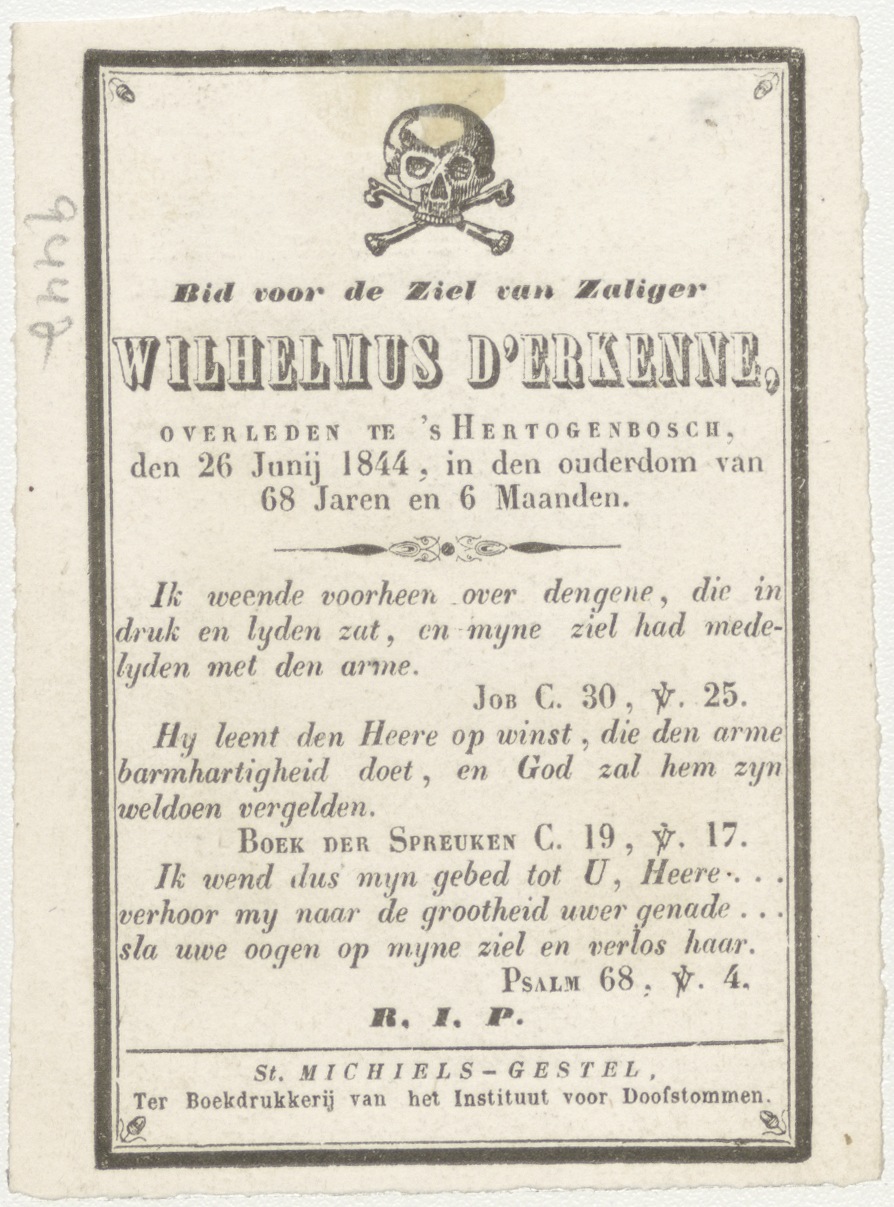 Bid voor de Ziel van Zaliger
WILHELMUS D'ERKENNE,
OVERLEDEN TE 's HERTOGENBOSCH,
den 26 Junij 1844, in den ouderdom van
68 Jaren en 6 Maanden.
Ik weende voorheen over dengene, die in
druk en lyden zat, en myne ziel had mede-
lyden met den arme.
JOB C. 30, ℣. 25.
Hy leent den Heere op winst, die den arme
barmhartigheid doet, en God zal hem zyn
weldoen vergelden.
BOEK DER SPREUKEN C. 19, ℣. 17.
Ik wend dus myn gebed tot U, Heere. . . .
verhoor my naar de grootheid uwer genade . . .
sla uwe oogen op myne ziel en verlos haar.
PSALM 68, ℣. 4.
R. I. P.
St. MICHIELS-GESTEL,
Ter Boekdrukkerij van het Instituut voor Doofstommen.